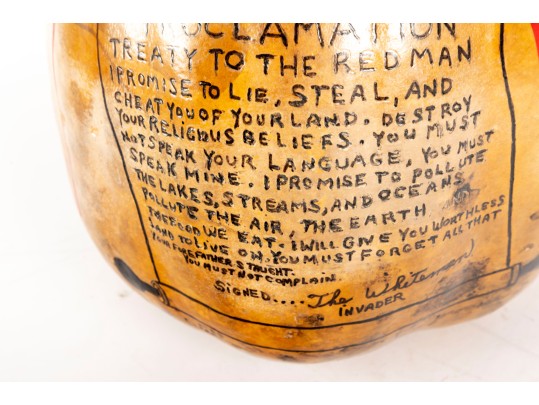 PROCLAMATION
TREATY TO THE REDMAN
I PROMISE TO LIE, STEAL, AND
CHEAT YOU OF YOUR LAND. DESTROY
YOUR RELIGIOUS BELIEFS. YOU MUST
NOT SPEAK YOUR LANGUAGE, YOU MUST
SPEAK MINE. I PROMISE TO POLLUTE
THE LAKES, STREAMS, AND OCEANS.
POLLUTE THE AIR, THE EARTH
FOOD WE EAT. I WILL GIVE YOU WORTHLESS
LAND TO LIVE ON. YOU MUST FORGET ALL THAT
YOUR FOREFATHERS TAUGHT.
YOU MUST NOT COMPLAIN.
SIGNED.... The Whiteman)
INVADER